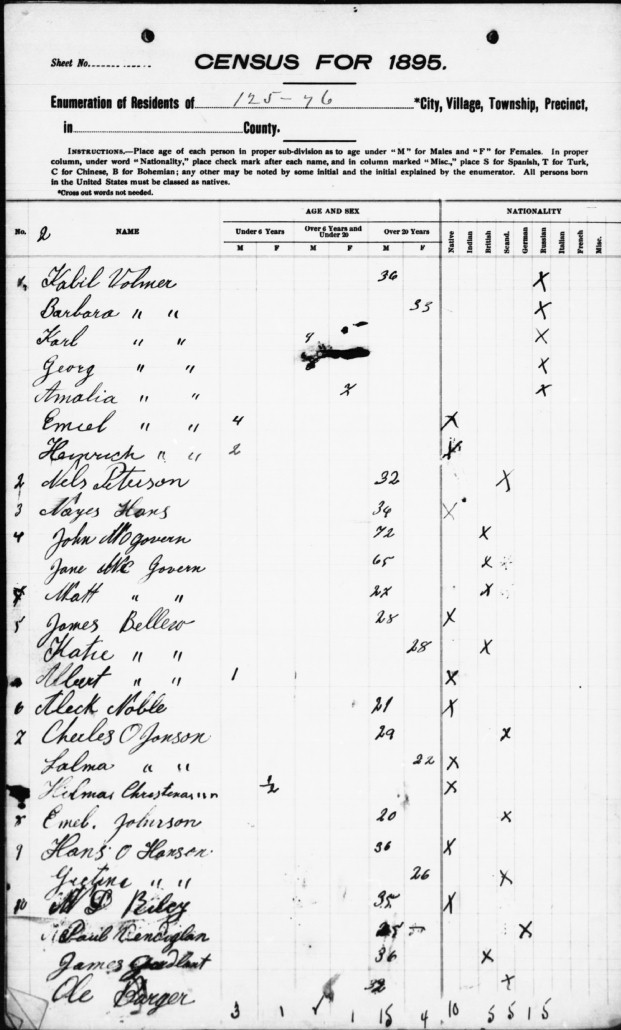 Sheet No.
CENSUS FOR 1895.
Enumeration of Residents of 125-76 *City, Village, Township, Precinct,
in County.
INSTRUCTIONS.—Place age of each person in proper sub-division as to age under "M" for Males and "F" for Females. In proper
column, under word "Nationality," place check mark after each name, and in column marked "Misc.," place S for Spanish, T for Turk,
C for Chinese, B for Bohemian; any other may be noted by some initial and the initial explained by the enumerator. All persons born
in the United States must be classed as natives.
*Cross out words not needed.
AGE AND SEX NATIONALITY
No. 2 NAME Under 6 Years Over 6 Years and Under 20 Over 20 Years Native Indian British Scand. German Russian Italian French Misc.
M F M F M F
Kabil Volmer 36 X
Barbara " " 33 X
Karl " " 9 X
Georg " " X
Amalia " " X
Emiel " " 4 X
Heinrich " " 2 X
2 Nels Peterson 32 X
3 Noyes Hans 34 X
4 John McGovern 72 X
Jane Mc Govern 65 X
Matt " " X
5 James Bellew 28 X
Katie " " 28 X
Albert " " 1 X
6 Aleck Noble 21 X
7 Charles O Jonson 29 X
Salma " " 22 X
Hilmas 1/2 X
8 Emel. Johnson 20 X
9 Hans O Hanson 36 X
" " 26 X
10 Riley 35 X
Paul X
James 36 X
Ole X
3 1 1 15 4 10 5 5 1 5